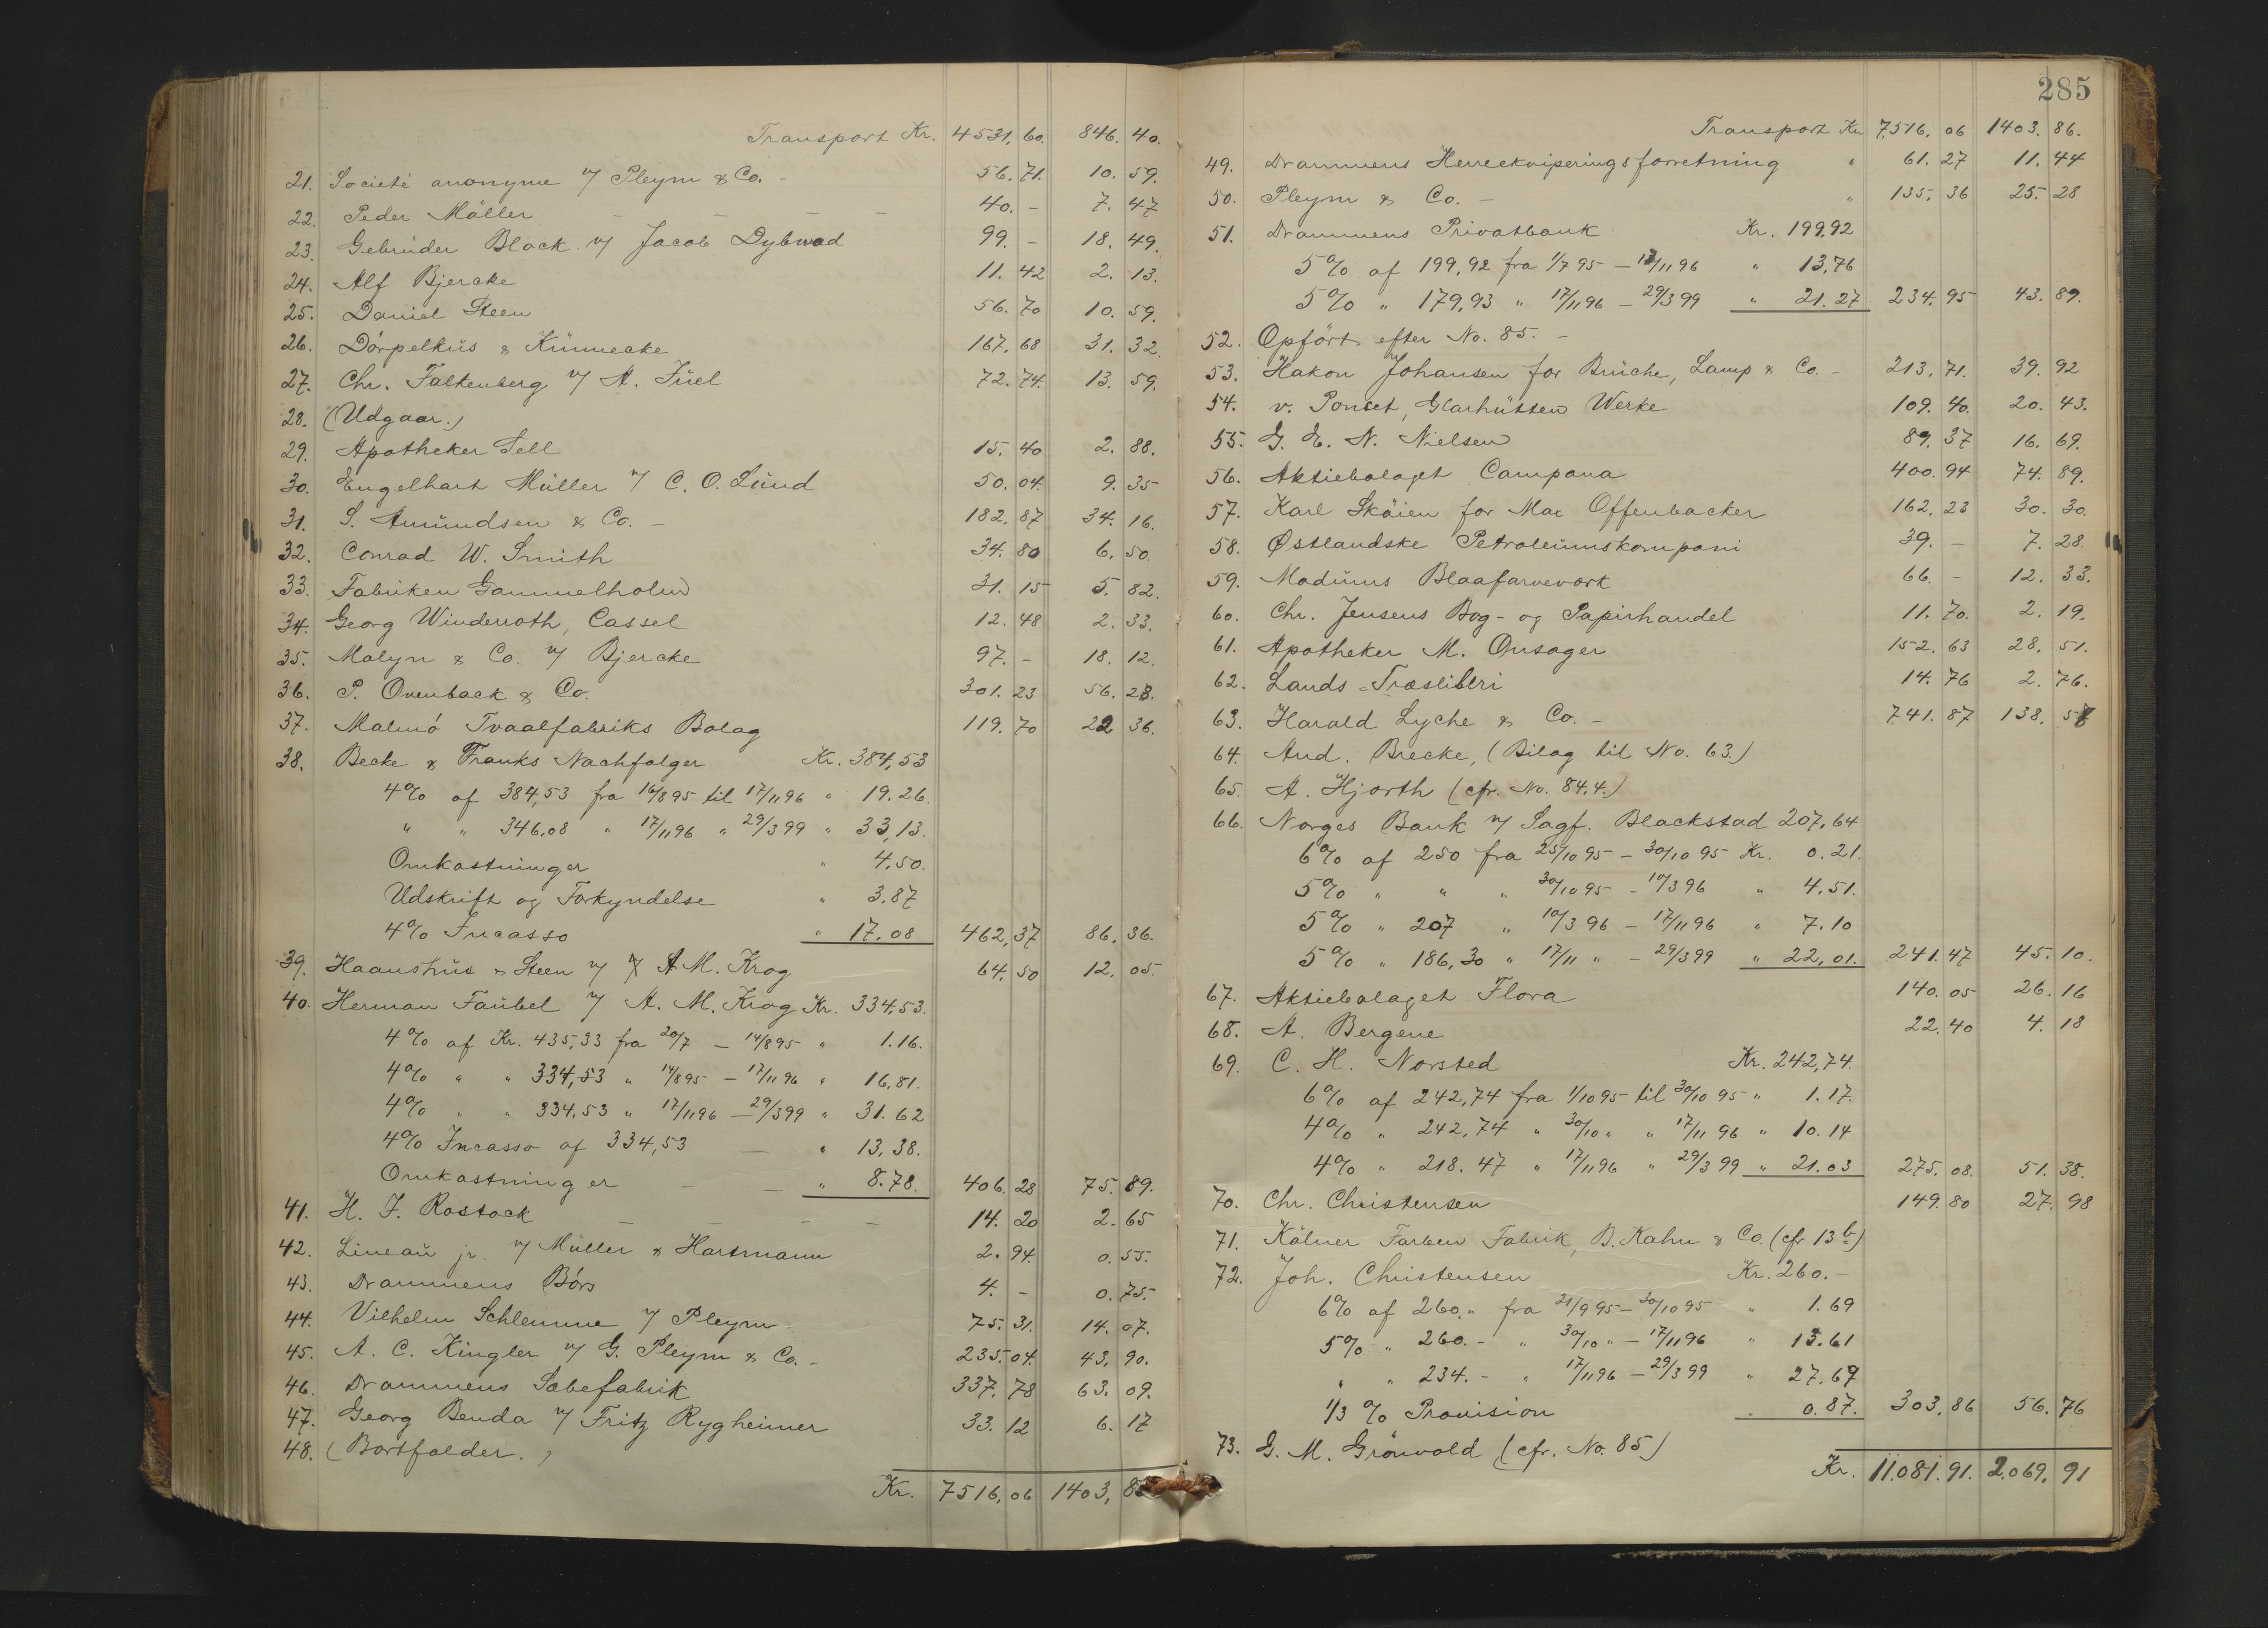 Transport Kr. 4531,60. 846.40.
21. Societé anonyme v/ Pleym & Co. - 56.71. 10.59.
22. Peder Möller - - - - 40.- 7.47
23. Gebrüder Block v/ Jacob Dybwad 99.- 18.49.
24. Alf Bjercke 11.42 2.13.
25. Daniel Steen 56.70 10.59.
26. Dörpelküs & Künnecke 167.68 31.32.
27. Chr. Falkenberg v/ A. Juel 72.74. 13.59.
28. (Udgaar.)
29. Apotheker Sell 15.40 2.88.
30. Engelhart Müller v/ C. O. Lund 50.04. 9.35
31. S. Amundsen & Co. - 182.87 34.16.
32. Conrad W. Smith 34.80 6.50.
33. Fabriken Gammelholm 31.15 5.82.
34. Georg Winderroth, Cassel 12.48 2.33.
35. Malyn & Co. v/ Bjercke 97.- 18.12.
36. P. Ovenback & Co. 301.23 56.28.
37. Malmö Tvaalfabriks Bolag 119.70 22 36.
38. Becke & Franks Nachfolger Kr. 384,53
4% af 384,53 fra 16/8 95 til 17/11 96 " 19.26.
" " 346,08 " 17/11 96 " 29/3 99 " 33,13.
Omkostninger " 4,50.
Udskrift og Forkyndelse " 3.87
4% Incasso " 17.08 462,37 86.36.
39. Haanshus & Steen v/ A. M. Krog 64.50 12.05.
40. Herman Faubel v/ A. M. Krog Kr. 334,53.
4% af Kr. 435,33 fra 20/7 - 14/8 95 " 1.16.
4% " " 334,53 " 14/8 95 - 17/11 96 " 16,81.
4% " " 334,53 " 17/11 96 - 29/3 99 " 31.62
4% Incasso af 334,53 - " 13,38.
Omkostninger - - " 8.78. 406.28 75.89.
41. H. J. Rostock - - - - 14.20 2.65
42. Lineau jr. v/ Müller & Hartmann 2.94. 0.55.
43. Drammens Börs 4.- 0.75.
44. Vilhelm Schlemme v/ Pleym - 75.31. 14.07.
45. A. C. Kingler v/ G. Pleym & Co. - 235.04. 43.90.
46. Drammens Sæbefabrik 337.78 63.09.
47. Georg Benda v/ Fritz Rygheimer 33.12 6.17
48. (Bortfalder.)
Kr. 7516,06 1403,8
285
Transport Kr. 7,516,06 1403.86.
49. Drammens Herreekviperingsforretning " 61.27 11.44
50. Pleym & Co. - " 135,36 25.28
51. Drammens Privatbank Kr. 199,92
5% af 199,92 fra 1/7 95 - 17/11 96 " 13,76
5% " 179,93 " 17/11 96 - 29/3 99 " 21.27 234.95 43.89.
52. Opfört efter No. 85. -
53. Hakon Johansen for Brüche, Lamp & Co. - 213.71. 39.92
54. v. Poncet, Glashütten Werke 109.40. 20.43.
55. G. E. N. Nielsen 89.37 16.69.
56. Aktiebolaget Campana 400.94 74.89.
57. Karl Sköien for Max Offenbacker 162.23 30.30.
58. Østlandske Petroleumskompani 39.- 7.28.
59. Modums Blaafarveværk 66.- 12.33.
60. Chr. Jensens Bog- og Papirhandel 11.70. 2.19.
61. Apotheker M. Onsager 152.63 28.51.
62. Lands-Træsliberi 14.76 2.76.
63. Harald Lyche & Co. - 741.87 138.58
64. And. Brecke, (Bilag til No. 63.)
65. A. Hjorth (cfr. No. 84.4.)
66. Norges Bank v/ Sagf. Blackstad 207.64
6% af 250 fra 25/10 95 - 30/10 95 Kr. 0.21.
5% " " " 30/10 95 - 10/3 96 " 4.51.
5% " 207 " 10/3 96 - 17/11 96 " 7.10
5% " 186,30 " 17/11 " - 29/3 99 " 22,01. 241.47 45.10.
67. Aktiebolaget Flora 140.05 26.16
68. A. Bergene 22.40 4.18
69. C. H. Norsted Kr. 242,74.
6% af 242,74 fra 1/10 95 til 30/10 95 " 1.17.
4% " 242,74 " 30/10 " " 17/11 96 " 10.14
4% " 218.47 " 17/11 96 " 29/3 99 " 21.03 275.08. 51.38.
70. Chr. Christensen 149.80 27.98
71. Kölner Farben Fabrik, B. Kahn & Co. (cfr 13 b)
72. Joh. Christensen Kr. 260.-
6% af 260," fra 21/9 95 - 30/10 95 " 1.69
5% " 260.- " 30/10 " - 17/11 96 " 13.61
" " 234.- " 17/11 96 - 29/3 99 " 27.69
1/3 % Provision " 0.87. 303.86 56.76
73. G. M. Grönvold (cfr. No. 85)
Kr. 11.081.91. 2,069.91